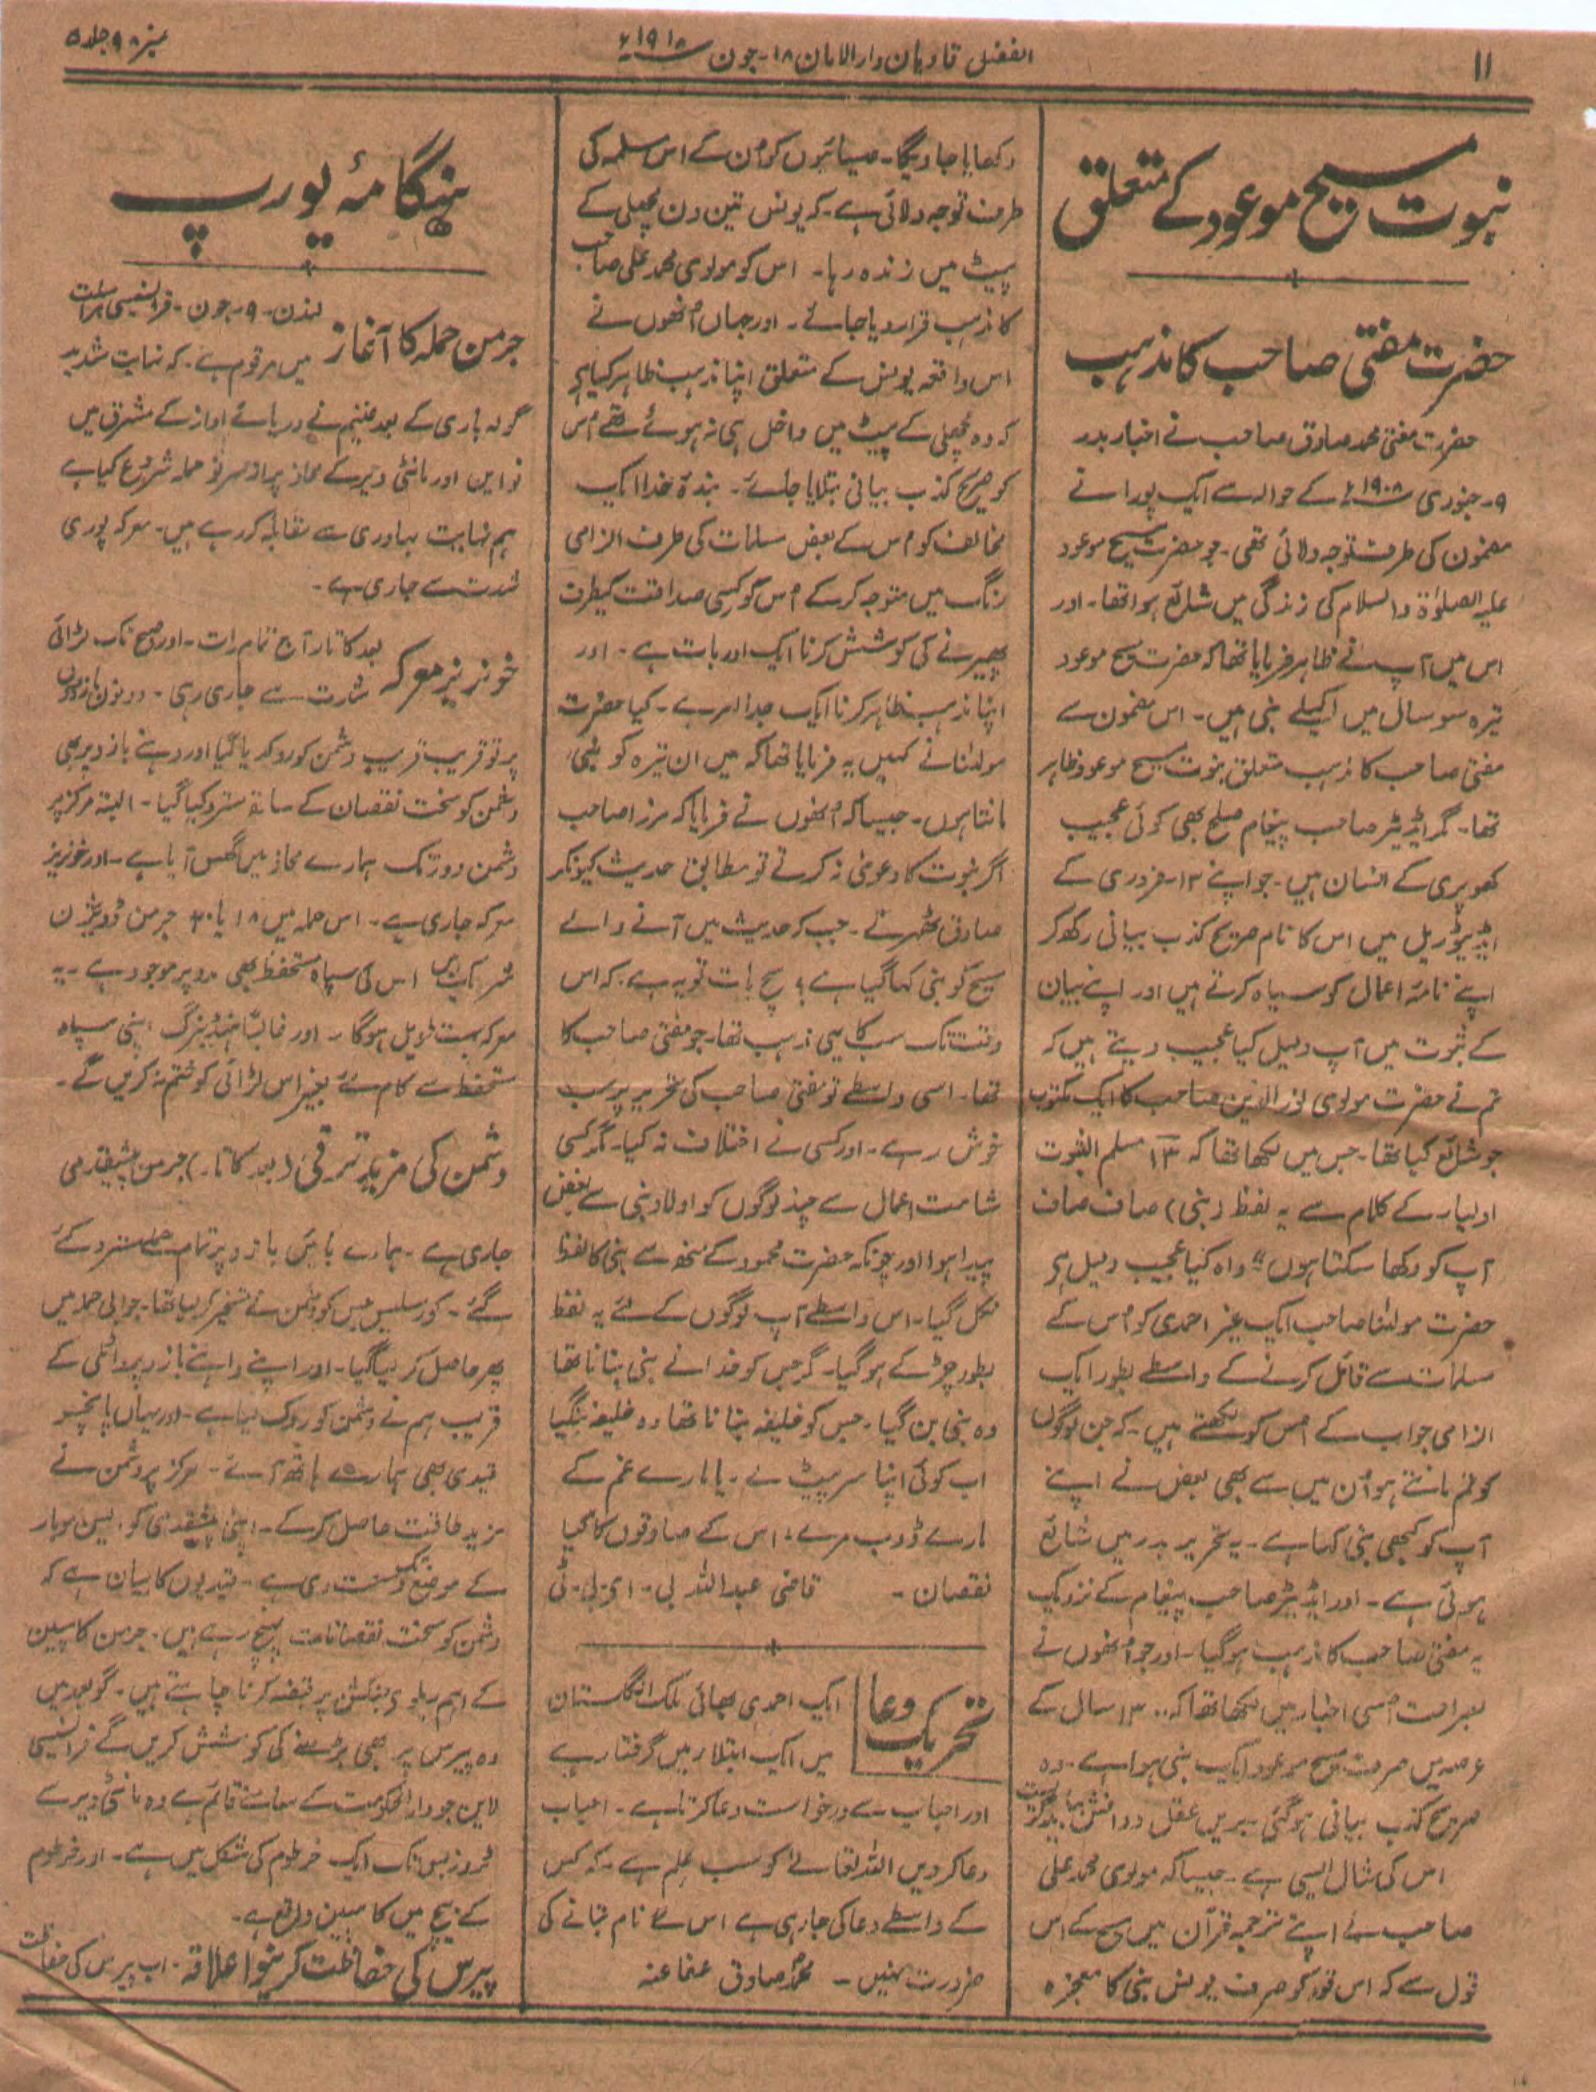 ۱۱
الفضل قادیان دارالامان ۱۸۔ جون ۱۹۱۸ء
نمبر ۹۸ جلد ۵
نبوت مسیح موعود کے متعلق
حضرت مفتی صاحب کا مذہب
حضرت مفتی محمد صادق صاحب نے اخبار بدر
۹۔ جنوری ۱۹۰۸ء کے حوالہ سے ایک پورانے
مضمون کی طرف توجہ دلائی تھی۔ جو حضرت مسیح موعود
علیہ الصلوٰۃ والسلام کی زندگی میں شائع ہوا تھا۔ اور
اس میں آپ نے ظاہر فرمایا تھا کہ حضرت مسیح موعود
تیرہ سو سال میں اکیلے نبی ہیں۔ اس مضمون سے
مفتی صاحب کا مذہب متعلق نبوت مسیح موعود ظاہر
تھا۔ مگر ایڈیٹر صاحب پیغام صلح بھی کوئی عجیب
کھوپری کے انسان ہیں۔ جو اپنے ۱۳۔ فروری کے
ایڈیٹوریل میں اس کا نام صریح کذب بیانی رکھ کر
اپنے نامۂ اعمال کو سیاہ کرتے ہیں اور اپنے بیان
کے ثبوت میں آپ دلیل کیا عجیب دیتے ہیں کہ
ہم نے حضرت مولوی نور الدین صاحب کا ایک مکتوب
جو شائع کیا تھا۔ جس میں لکھا تھا کہ ۱۳ مسلم الثبوت
اولیاء کے کلام سے یہ لفظ (نبی) صاف صاف
آپ کو دکھا سکتا ہوں" واہ کیا عجیب دلیل ہے
حضرت مولٰنا صاحب ایک غیر احمدی کو اُس کے
مسلمات سے قائل کرنے کے واسطے بطور ایک
الزامی جواب کے اُس کو لکھتے ہیں۔ کہ جن لوگوں
کو تم مانتے ہو اُن میں سے بھی بعض نے اپنے
آپ کو کبھی نبی کہا ہے۔ یہ تحریر بدر میں شائع
ہوئی ہے۔ اور ایڈیٹر صاحب پیغام کے نزدیک
یہ مفتی صاحب کا مذہب ہو گیا۔ اور جو اُنھوں نے
بصراحت اُسی اخبار میں لکھا تھا کہ ۱۳۰۰ سال کے
عرصہ میں صرف مسیح موعود ایک نبی ہوا ہے۔ وہ
صریح کذب بیانی ہو گئی۔ بریں عقل و دانش بباید گریست
اس کی مثال ایسی ہے۔ جیسا کہ مولوی محمد علی
صاحب نے اپنے ترجمہ قرآن میں مسیح کے اس
قول سے کہ اس قوم کو صرف یونس نبی کا معجزہ
دکھایا جاویگا۔ عیسائیوں کو اُن کے اس مسلمہ کی
طرف توجہ دلائی ہے۔ کہ یونس تین دن مچھلی کے
پیٹ میں زندہ رہا۔ اس کو مولوی محمد علی صاحب
کا مذہب قرار دیا جائے۔ اور جہاں اُنھوں نے
اس واقعہ یونس کے متعلق اپنا مذہب ظاہر کیا ہے
کہ وہ مچھلی کے پیٹ میں داخل ہی نہ ہوئے تھے اُس
کو صریح کذب بیانی بتلایا جائے۔ بندۂ خدا ایک
مخالف کو اُس کے بعض مسلمات کی طرف الزامی
رنگ میں متوجہ کر کے اُس کو کسی صداقت کیطرف
پھیرنے کی کوشش کرنا ایک اور بات ہے۔ اور
اپنا مذہب ظاہر کرنا ایک جدا امر ہے۔ کیا حضرت
مولٰنا نے کہیں یہ فرمایا تھا کہ میں ان تیرہ کو نبی
مانتا ہوں۔ جیسا کہ اُنھوں نے فرمایا کہ مرزا صاحب
اگر نبوت کا دعویٰ نہ کرتے تو مطابق حدیث کیونکر
صادق ٹھہرتے۔ جب کہ حدیث میں آنے والے
مسیح کو نبی کہا گیا ہے؟ سچ بات تو یہ ہے۔ کہ اس
وقت تک سب کا یہی مذہب تھا۔ جو مفتی صاحب کا
تھا۔ اسی واسطے تو مفتی صاحب کی تحریر پر سب
خوش رہے۔ اور کسی نے اختلاف نہ کیا۔ مگر کسی
شامت اعمال سے چند لوگوں کو اولاد نبی سے بغض
پیدا ہوا اور چونکہ حضرت محمود کے منھ سے نبی کا لفظ
نکل گیا۔ اس واسطے آپ لوگوں کے لئے یہ لفظ
بطور چڑ کے ہو گیا۔ مگر جس کو خدا نے نبی بنانا تھا
وہ نبی بن گیا۔ جس کو خلیفہ بنانا تھا وہ خلیفہ بنگیا
اب کوئی اپنا سر پیٹ لے۔ یا مارے غم کے
مارے ڈوب مرے، اس کے صادقوں کا کیا
نقصان۔ قاضی عبداللہ بی۔ اے۔ بی۔ ٹی
تحریک دعا
ایک احمدی بھائی ملک انگلستان
میں ایک ابتلاء میں گرفتار ہے
اور احباب سے درخواست دعا کرتا ہے۔ احباب
دعا کر دیں اللہ تعالےٰ کو سب علم ہے۔ کہ کس
کے واسطے دعا کی جا رہی ہے اس لئے نام بتانے کی
ضرورت نہیں۔ محمد صادق عفا عنہ
ہنگامۂ یورپ
جرمن حملہ کا آغاز
لندن۔ ۹۔ جون۔ فرانسیسی مراسلت
میں مرقوم ہے۔ کہ نہایت شدید
گولہ باری کے بعد غنیم نے دریائے اواز کے مشرق میں
نواین اور مانٹی ڈیر کے محاذ پر از سر نو حملہ شروع کیا ہے
ہم نہایت بہادری سے مقابلہ کر رہے ہیں۔ معرکہ پوری
شدت سے جاری ہے۔
خونریز معرکہ
بعد کا تار آج تمام رات۔ اور صبح تک لڑائی
شدت سے جاری رہی۔ دونوں بازوؤں
پر تو قریب قریب دشمن کو روکدیا گیا اور دہنے بازو پر بھی
دشمن کو سخت نقصان کے ساتھ مسترد کیا گیا۔ البتہ مرکز پر
دشمن دور تک ہمارے محاذ میں گھس آیا ہے۔ اور خونریز
معرکہ جاری ہے۔ اس حملہ میں ۱۸ یا ۲۰ جرمن ڈویژن
شریک ہیں اس کی سپاہ مستحفظ بھی مدد پر موجود ہے۔ یہ
معرکہ بہت طویل ہوگا۔ اور غالباً ہنڈنبرگ اپنی سپاہ
مستحفظ سے کام لئے بغیر اس لڑائی کو ختم نہ کریں گے۔
دشمن کی مزید ترقی (بعد کا تار) جرمن پیشقدمی
جاری ہے۔ ہمارے بائیں بازو پر تمام حملے مسترد کئے
گئے۔ کورسلیس جس کو دشمن نے تسخیر کر لیا تھا۔ جوابی حملہ میں
پھر حاصل کر لیا گیا۔ اور اپنے داہنے بازو پر
قریب ہم نے دشمن کو روک لیا ہے۔ اور یہاں پانچسو
قیدی بھی ہمارے ہاتھ آئے۔ مرکز پر دشمن نے
مزید طاقت حاصل کر کے۔ اپنی پیشقدمی کو
کے موضع تک وسعت دی ہے۔ قیدیوں کا بیان ہے کہ
دشمن کو سخت نقصانات پہنچ رہے ہیں۔ جرمن کامپین
کے اہم ریلوے جنکشن پر قبضہ کرنا چاہتے ہیں۔ گو بعد میں
وہ پیرس پر بھی بڑھنے کی کوشش کریں گے فرانسیسی
لاین جو دارالحکومت کے سامنے قائم ہے وہ مانٹی ڈیر سے
تک ایک خرطوم کی شکل میں ہے۔ اور خرطوم
کے بیچ میں کامپین واقع ہے۔
پیرس کی حفاظت کرنیوالا علاقہ۔ اب پیرس کی حفاظت